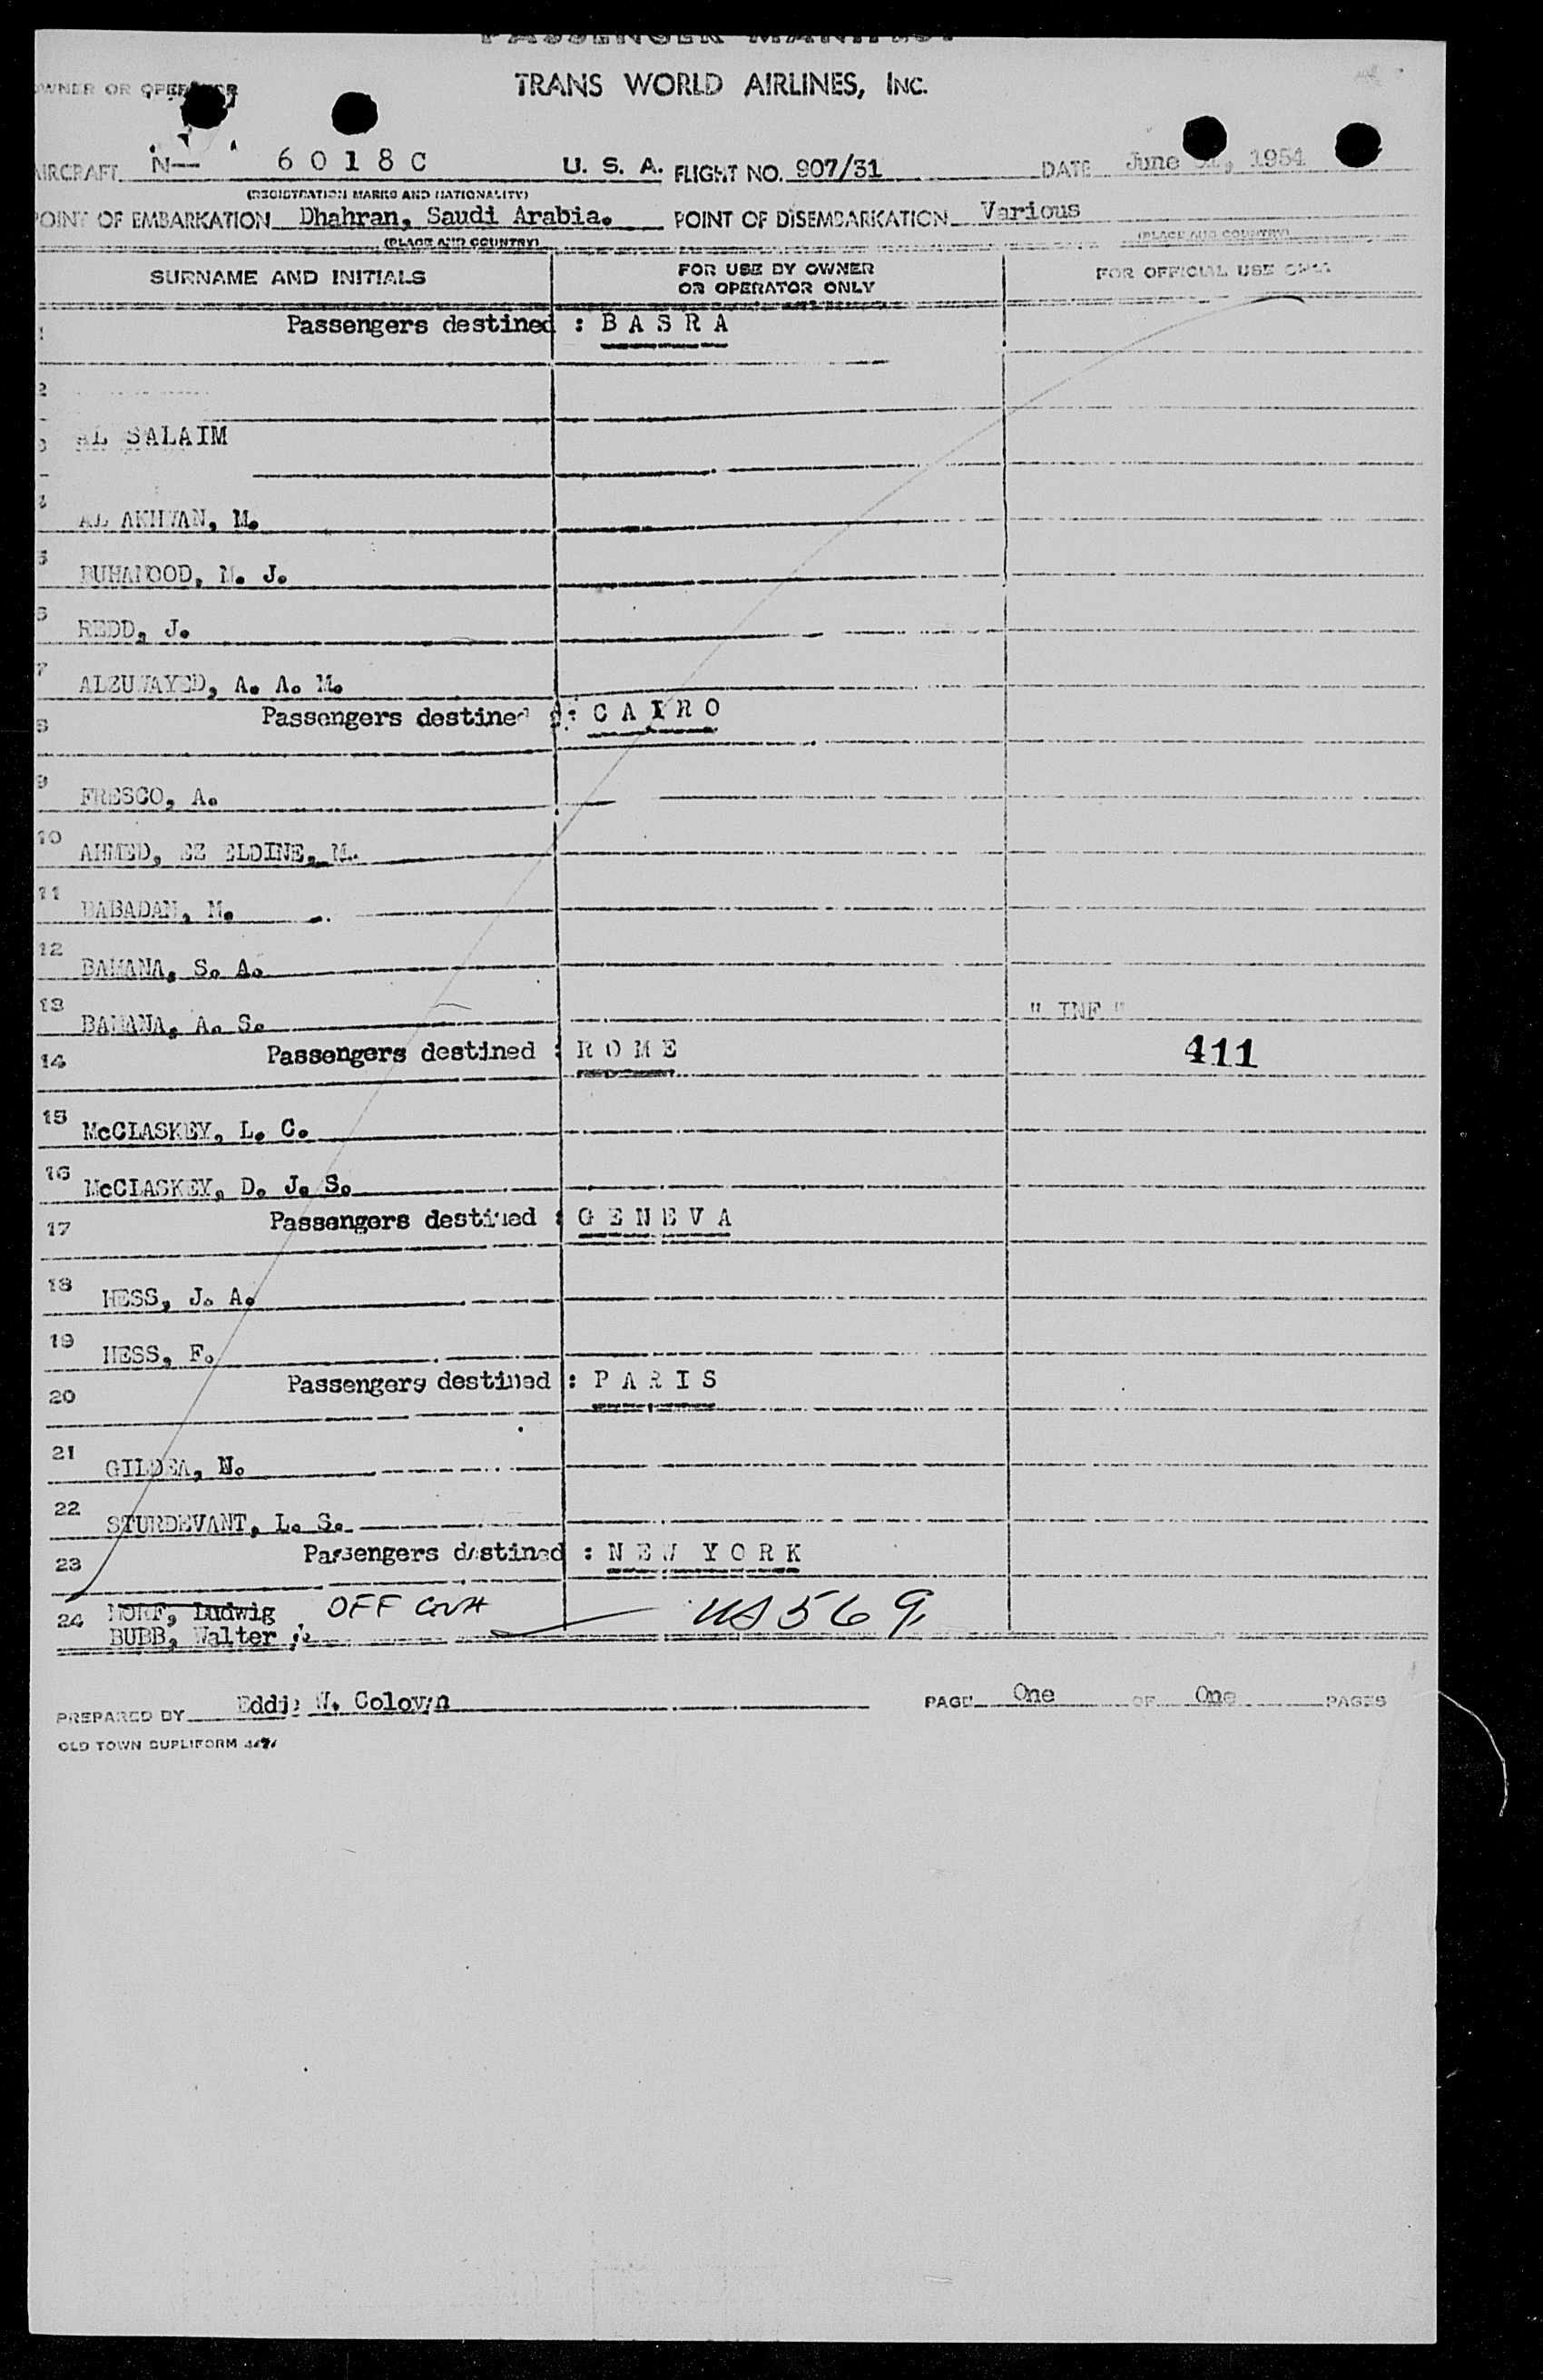 PASSENGER MANIFEST
TRANS WORLD AIRLINES, INC.
OWNER OR OPERATOR
AIRCRAFT N— 6 0 1 8 C U. S. A. FLIGHT NO. 907/31 DATE June 1954
(REGISTRATION MARKS AND NATIONALITY)
POINT OF EMBARKATION Dhahran, Saudi Arabia. POINT OF DISEMBARKATION Various
(PLACE AND COUNTRY) (PLACE AND COUNTRY)
SURNAME AND INITIALS FOR USE BY OWNER OR OPERATOR ONLY FOR OFFICIAL USE ONLY
1 Passengers destined : B A S R A
2
3 AL SALAIM
4 AL AKHWAN, M.
5 M. J.
6 REDD, J.
7 ALZUWAYED, A. A. M.
8 Passengers destined : C A I R O
9 FRESCO, A.
10 AHMED, EZ ELDINE, M.
11 BABADAN, M.
12 BAMANA, S. A.
13 BAMANA, A. S. " INF "
14 Passengers destined : R O M E 411
15 McCLASKEY, L. C.
16 McCLASKEY, D. J. S.
17 Passengers destined : G E N E V A
18 HESS, J. A.
19 HESS, F.
20 Passengers destined : P A R I S
21 GILDEA, N.
22 STURDEVANT, L. S.
23 Passengers destined : N E W Y O R K
24 MORF, Ludwig OFF GVA US 569
BUBB, Walter
PREPARED BY Eddie W. PAGE One OF One PAGES
OLD TOWN DUPLIFORM